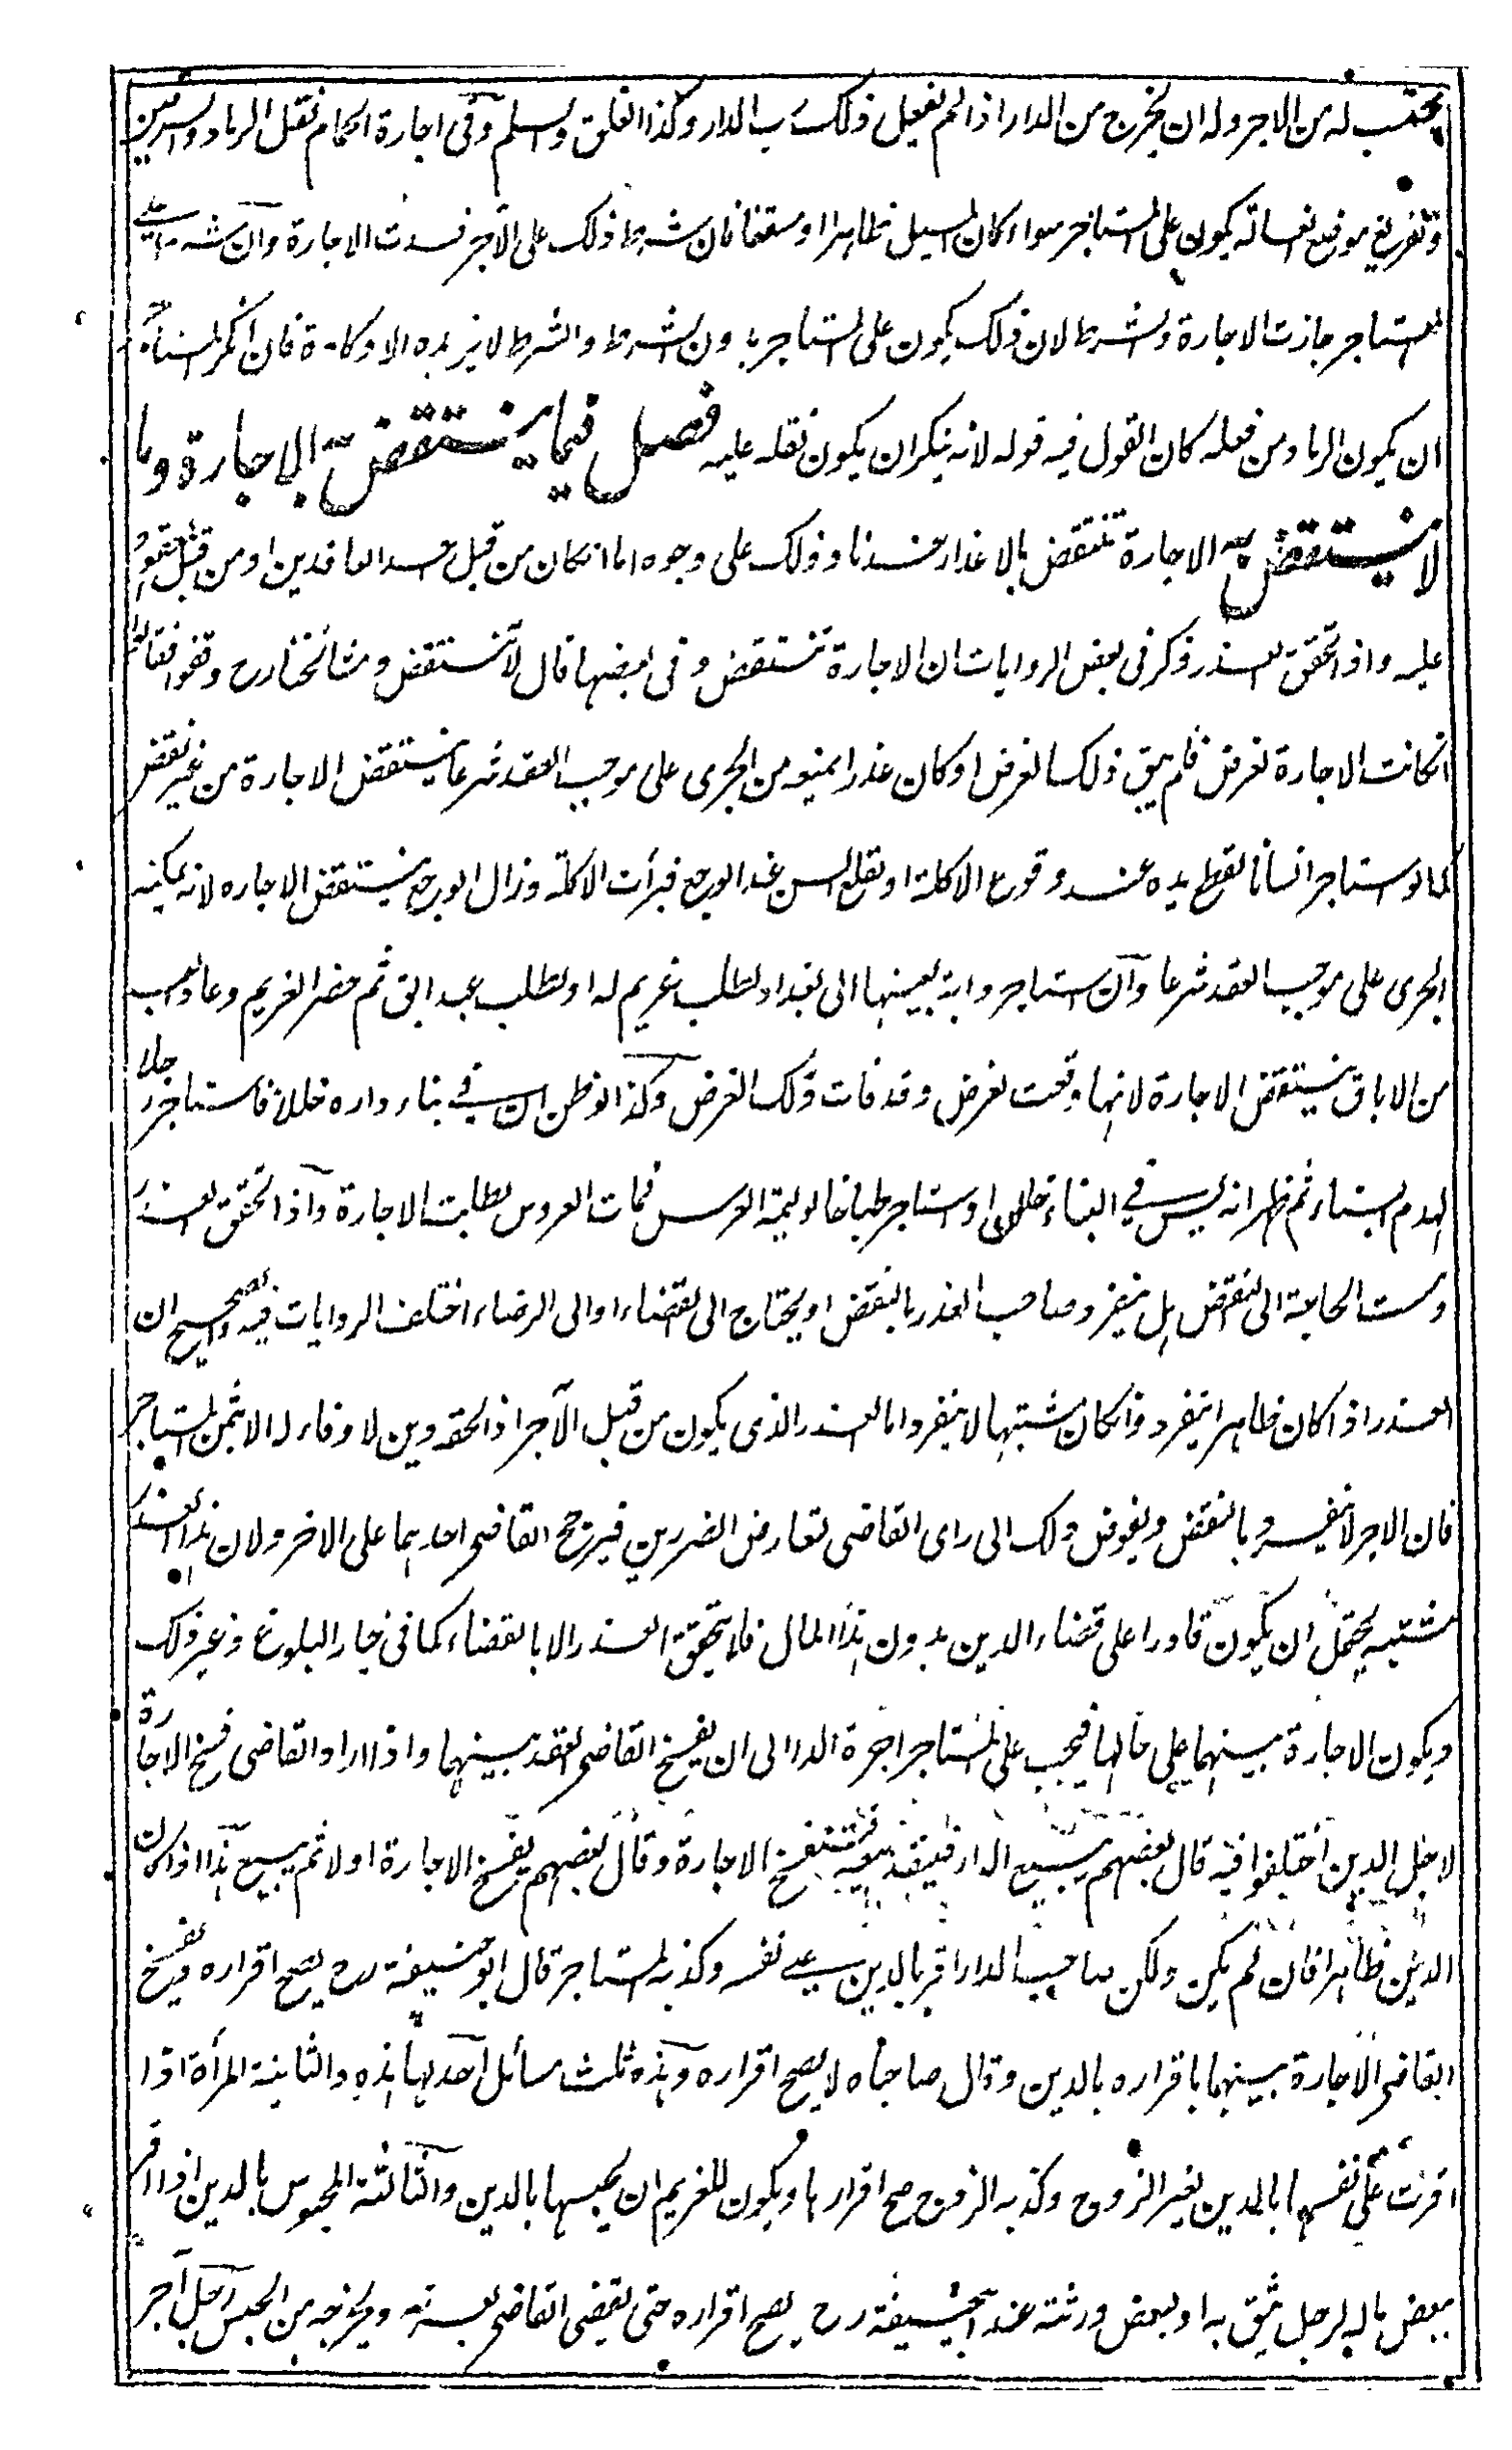 يحتسب له من الاجر وله ان يخرج من الدار اذا لم يفعل ذلك رب الدار وكذا الغلق والسلم وفي اجارة الحمام نقل الرماد والسرقين
وتفريغ موضع الغسالة يكون على المستاجر سواء كان المسيل ظاهرا او مسقفا فان شرط ذلك على الآجر فسدت الاجارة وان شرط على
المستاجر جازت الاجارة والشرط لان ذلك يكون على المستاجر بدون الشرط والشرط لا يزيده الا وكادة فان انكر المستاجر
ان يكون الرماد من فعله كان القول فيه قوله لانه ينكر ان يكون نقله عليه فصل فيما ينتقض به الاجارة وما
لا ينتقض به الاجارة تنتقض بالاعذار عندنا وذلك على وجوه اما ان كان من قبل احد العاقدين او من قبل المعقود
عليه واذا تحقق العذر ذكر في بعض الروايات ان الاجارة تنتقض وفي بعضها قال لا تنتقض ومشائخنا رح وفقوا فقالوا
ان كانت الاجارة لغرض فلم يبق ذلك الغرض او كان عذرا يمنعه من الجرى على موجب العقد شرعا ينتقض الاجارة من غير نقض
كما لو استاجر انسانا لقطع يده عند وقوع الاكلة او لقلع السن عند الوجع فبرأت الاكلة وزال الوجع ينتقض الاجاره لانه لا يمكنه
الجرى على موجب العقد شرعا وان استاجر دابة بعينها الى بغداد لطلب غريم له او لطلب عبد ابق ثم حضر الغريم وعاد العبد
من الاباق ينتقض الاجارة لانها وقعت لغرض وقد فات ذلك الغرض وكذا لو ظن ان في بناء داره خللا فاستاجر رجلا
لهدم البناء ثم ظهر انه ليس في البناء خلل او استاجر طباخا لوليمة العرس فمات العروس بطلت الاجارة واذا تحقق العذر
ومست الحاجة الى النقض هل يتفرد صاحب العذر بالنقض او يحتاج الى القضاء او الى الرضاء اختلف الروايات فيه والصحيح ان
العذر اذا كان ظاهرا يتفرد وان كان مشتبها لا يتفرد اما العذر الذى يكون من قبل الآجر اذا لحقه دين لا وفاء له الا بثمن المستاجر
فان الاجر لا يتفرد بالنقض ويفوض ذلك الى راى القاضى لتعارض الضررين فيرجح القاضى احدهما على الاخر ولان هذا العذر
مشتبه يحتمل ان يكون قادرا على قضاء الدين بدون هذا المال فلا يتحقق العذر الا بالقضاء كما في خيار البلوغ وغير ذلك
ويكون الاجارة بينهما على حالها فيجب على المستاجر اجرة الدار الى ان يفسخ القاضى العقد بينهما واذا اراد القاضى فسخ الاجارة
لاجل الدين اختلفوا فيه قال بعضهم يبيع الدار فينفذ بيعه فتنفسخ الاجارة وقال بعضهم يفسخ الاجارة اولا ثم يبيع هذا اذا كان
الدين ظاهرا فان لم يكن ولكن صاحب الدار اقر بالدين على نفسه وكذبه المستاجر قال ابو حنيفة رح يصح اقراره ويفسخ
القاضى الاجارة بينهما باقراره بالدين وقال صاحباه لا يصح اقراره وهذه ثلث مسائل احدها هذه والثانية المرأة اذا
اقرت على نفسها بالدين لغير الزوج وكذبه الزوج صح اقرارها ويكون للغريم ان يحبسها بالدين والثالثة المحبوس بالدين اذا اقر
ببعض ماله لرجل يثق به او لبعض ورثته عند ابي حنيفة رح يصح اقراره حتى يقضى القاضى بعسرته ويخرجه من الحبس رجل آجر